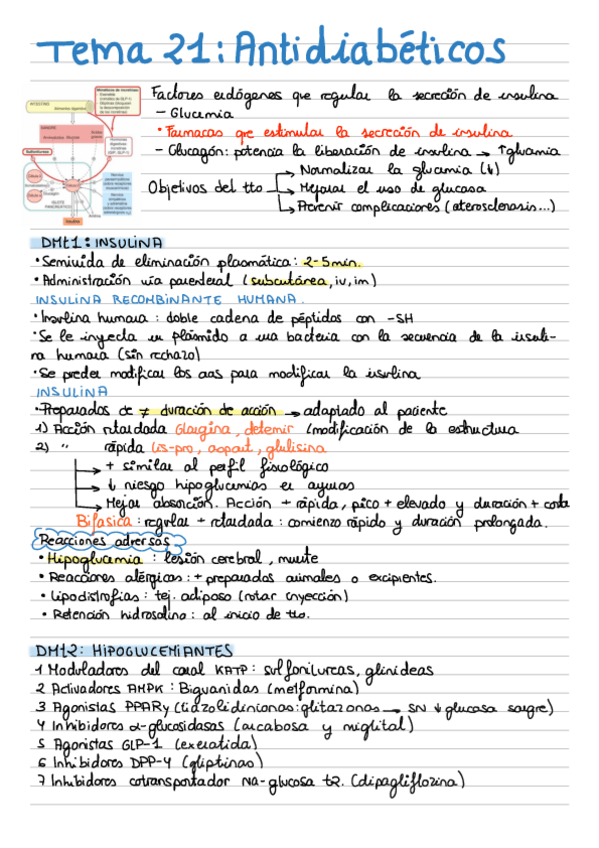 Tema 21: Antidiabéticos
Factores endógenos que regulan la secreción de insulina
- Glucemia
• Fármacos que estimulan la secreción de insulina
- Glucagón: potencia la liberación de insulina → ↑glucemia
Objetivos del tto
→ Normalizar la glucemia (↓)
→ Mejorar el uso de glucosa
→ Prevenir complicaciones (aterosclerosis...)
DMt1: INSULINA
• Semivida de eliminación plasmática: 2-5min.
• Administración vía parenteral (subcutánea, iv, im)
INSULINA RECOMBINANTE HUMANA.
• Insulina humana: doble cadena de péptidos con -SH
• Se le inyecta un plásmido a una bacteria con la secuencia de la insuli-
na humana (sin rechazo)
• Se pueden modificar los aas para modificar la insulina
INSULINA
• Preparados de ≠ duración de acción → adaptado al paciente
1) Acción retardada Glargina, detemir (modificación de la estructura
2) " rápida Lis-pro, aspart, glulisina
→ + similar al perfil fisiológico
→ ↓ riesgo hipoglucemias en ayunas
→ Mejor absorción. Acción + rápida, pico + elevado y duración + corta
Bifásica: regular + retardada: comienzo rápido y duración prolongada.
Reacciones adversas
• Hipoglucemia: lesión cerebral, muerte
• Reacciones alérgicas: + preparados animales o excipientes.
• Lipodistrofias: tej. adiposo (rotar inyección)
• Retención hidrosalina: al inicio de tto.
DMt2: HIPOGLUCEMIANTES
1 Moduladores del canal KATP: sulfonilureas, glinidas
2 Activadores AMPK: Biguanidas (metformina)
3 Agonistas PPARγ (tiazolidinionas: glitazonas → SN ↓ glucosa sangre)
4 Inhibidores α-glucosidasas (acarbosa y miglitol)
5 Agonistas GLP-1 (exenatida)
6 Inhibidores DPP-4 (gliptinas)
7 Inhibidores cotransportador NA-glucosa t2. (dipagliflozina)